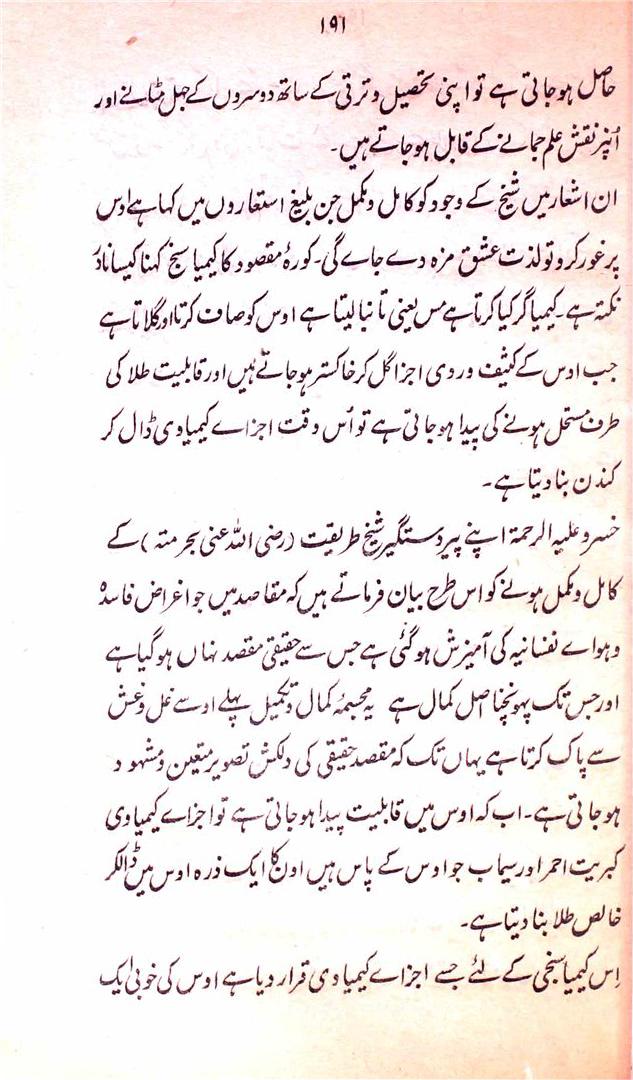 ۱۹۱
حاصل ہوجاتی ہے تو اپنی تحصیل و ترقی کے ساتھ دوسروں کے جہل مٹانے اور
اُنپر نقش علم جمانے کے قابل ہوجاتے ہیں۔
ان اشعار میں شیخ کے وجود کو کامل و مکمل جن بلیغ استعاروں میں کہا ہے اوس
پر غور کرو تو لذت عشق مزہ دے جاے گی۔ کورۂ مقصود کا کیمیا سنج کہنا کیسا نادر
نکتہ ہے۔ کیمیا گر کیا کرتا ہے مس یعنی تانبا لیتا ہے اوس کو صاف کرتا اور گلاتا ہے
جب اوس کے کثیف وردی اجزا گل کر خاکستر ہوجاتے ہیں اور قابلیت طلا کی
طرف مستحل ہونے کی پیدا ہوجاتی ہے تو اُس وقت اجزاے کیمیاوی ڈال کر
کندن بنا دیتا ہے۔
خسرو علیہ الرحمۃ اپنے پیر دستگیر شیخ طریقت (رضی اللہ عنی بحرمتہ) کے
کامل و مکمل ہونے کو اس طرح بیان فرماتے ہیں کہ مقاصد میں جو اغراض فاسدہ
وہواے نفسانیہ کی آمیزش ہوگئی ہے جس سے حقیقی مقصد نہاں ہوگیا ہے
اور جس تک پہونچنا اصل کمال ہے یہ مجسمۂ کمال و تکمیل پہلے اوسے غل و غش
سے پاک کرتا ہے یہاں تک کہ مقصد حقیقی کی دلکش تصویر متعین و مشہود
ہوجاتی ہے۔ اب کہ اوس میں قابلیت پیدا ہوجاتی ہے تو اجزاے کیمیاوی
کبریت احمر اور سیماب جو اوس کے پاس ہیں اون کا ایک ذرہ اوس میں ڈالکر
خالص طلا بنا دیتا ہے۔
اِس کیمیا سنجی کے لئے جسے اجزاے کیمیاوی قرار دیا ہے اوس کی خوبی ایک